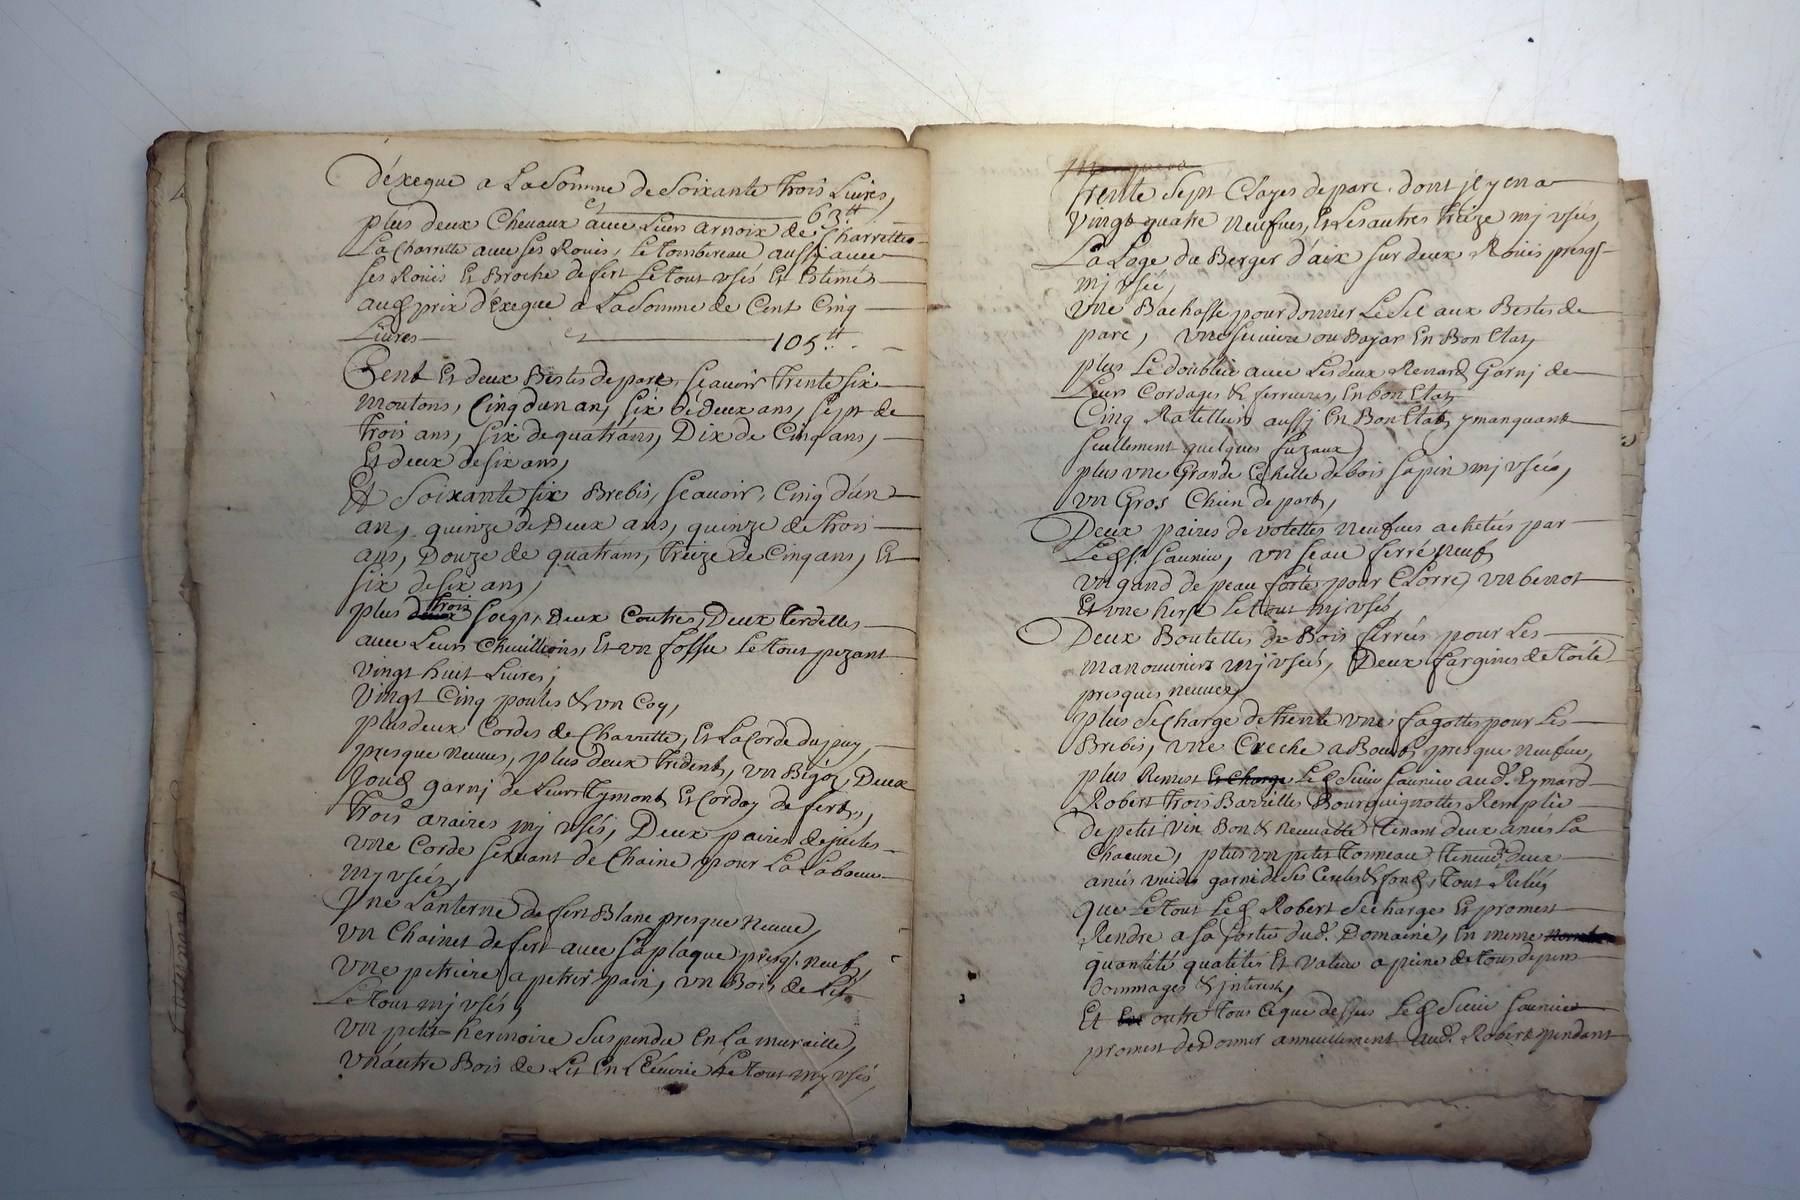 d'éxeque a La Somme de Soixante trois Livres,
63 ₶
plus deux Chevaux avec Leurs arnoix de Charrette
La Charrette avec ses Roües, Le Tombereau aussy avec
ses Roües Et Broche de fert Le tout usés Et Estimés
aud prix d'éxeque a La Somme de Cent Cinq
Livres 105 ₶
Cent Et deux Bestes de parc, sçavoir trente six
moutons, Cinq d'un an, six de Deux ans, sept de
trois ans, six de quatrans, Dix de Cinq ans,
Et deux de six ans,
Et Soixante six Brebis, sçavoir, Cinq d'un
an, quinze de Deux ans, quinze de trois
ans, Douze de quatrans, treize de Cinq ans, Et
six de six ans,
plus deux trois socqs, Deux Coutres, Deux tendelles
avec Leurs Chevillons, Et un fossu Le tout pezant
vingt huit Livres,
Vingt Cinq poules & un Coq,
plus deux Cordes de Charrette, Et La Corde du puy,
presque neuves, plus deux tridents, un Bigot, Deux
Joud garnj de Leurs Tymont Et Cordoy de fert,
trois araires mj usés, Deux paires de juiles
une Corde servant de Chaine pour La Labour
mj usées,
Une Lanterne de fert Blanc presque neuve,
un Chainet de fert avec sa plaque presq. neuf,
une petrière a petrir pain, un Bois de Lit
Le tout mj usés,
un petit hermoire suspendu En La muraille,
un autre Bois de Lit En L'Ecurie Le tout mj usés,
trente sept Clayes de parc. dont jl y en a
vingt quatre neufves, Et Les autres treize mj usés,
La Loge du Berger d'aix sur deux Roües presq.
mj usée,
Une Bachasse pour donner Le Sel aux Bestes de
parc, une siviere ou Bayar En Bon Etat,
plus Le doublis avec Les deux Renard Garnj de
Leurs Cordages & ferrures, En bon Etat,
Cinq Ratelliers aussj En Bon Etat, y manquant
seullement quelques fuzaux,
plus une Grande Echelle de bois sapin mj usée,
un Gros Chien de parc,
Deux paires de volettes neufves achetées par
Led Sr. Saunier, un seau ferré neuf,
un gand de peau forte pour L'orre, un benot
Et une herse Le tout mj usés,
Deux Boutelles de Bois ferrées pour Les
manouvriers mj usées, Deux fargines de toile
presques neuves,
plus Se Charge de trente une fagottes pour Les
Brebis, une Creche a Bout, presque neufve,
plus Remest Et Charge Led Sieur Saunier aud. Eymard
Robert trois Barrilles Bourguignottes Remplie
de petit Vin Bon & Recevable tenant deux anées La
Chacune, plus un petit Tonneau tenend deux
anées vuides garni de ses Cercles & fond, tout Reliés
Que Le tout Led Robert Se Charge Et promest
Rendre a Sa Sortie dud. Domaine, En meme nombre
quantité qualités Et valeur a peine de tous depens
dommages & jnterest,
Et En outre tous Ce que dessus Led Sieur Saunier
promest de Donner annuellement aud. Robert pendant